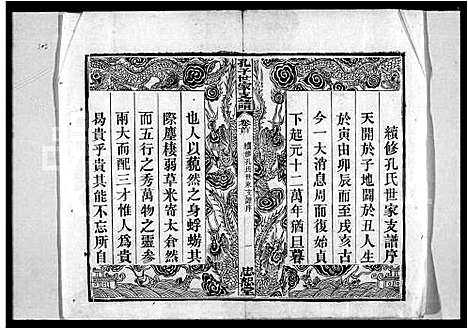 續修孔氏世家支譜序
天開於子地闢於丑人生
於寅由卯辰而至戌亥古
今一大消息周而復始貞
下起元十二萬年猶旦暮
孔子世家支譜
卷首
續修孔氏世家支譜序
一
也人以藐然之身蜉蝣其
際塵棲弱草米寄太倉然
而五行之秀萬物之靈參
兩大而配三才惟人為貴
曷貴乎貴其能不忘所自